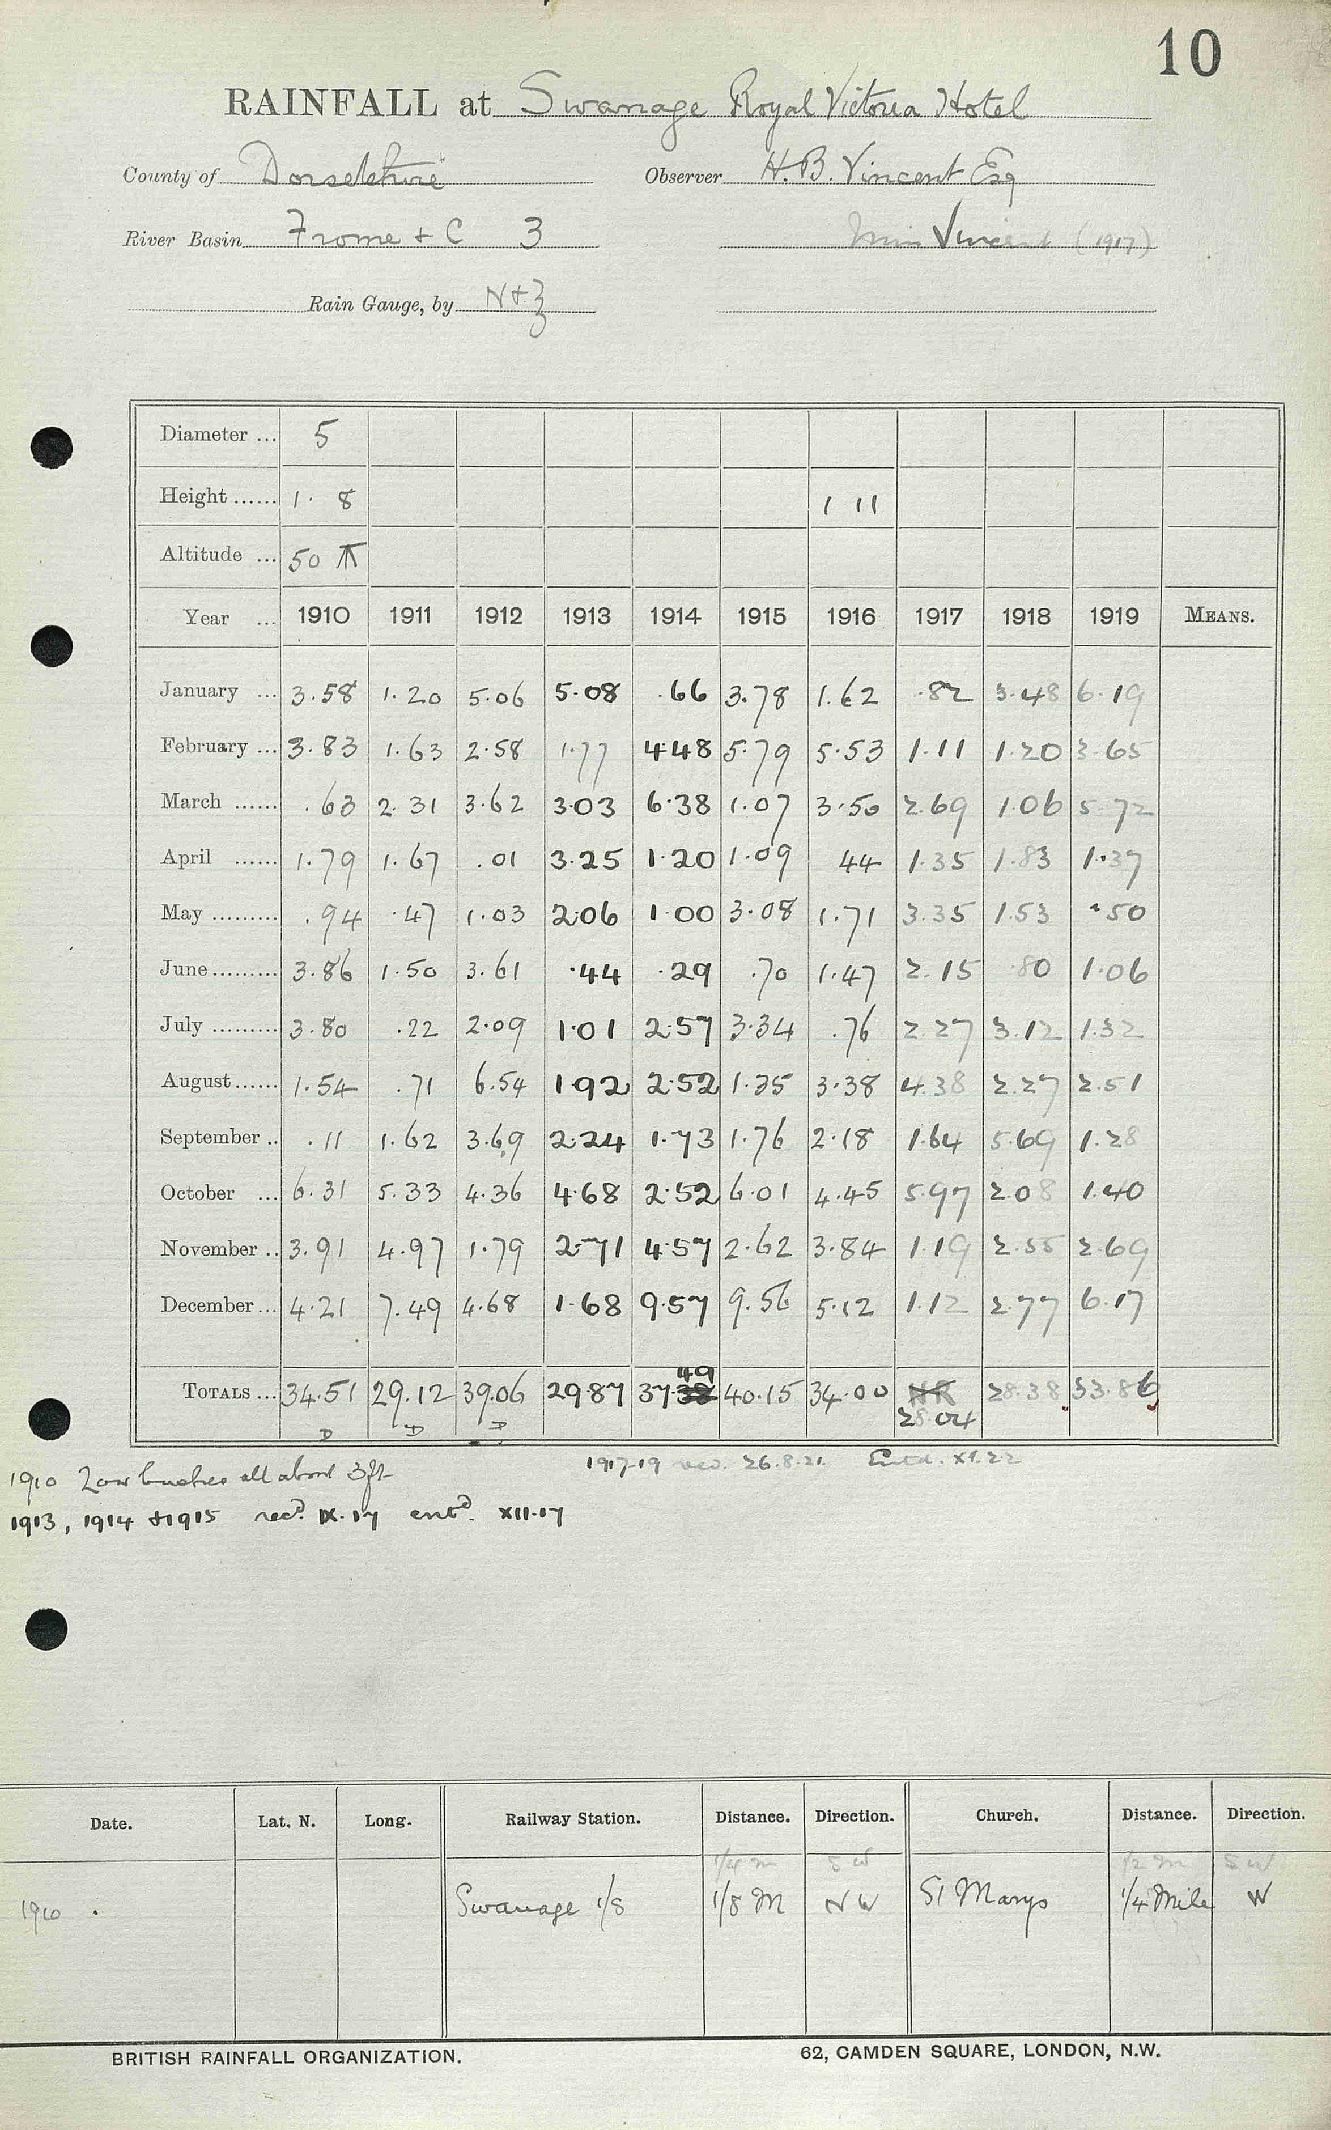 10
RAINFALL at Swanage Royal Victoria Hotel
County of Dorsetshire Observer H. B. Vincent Esq
River Basin Frome + C 3 Miss Vincent (1917)
Rain Gauge, by N+Z
Diameter ... 5
Height ...... 1. 8 1 11
Altitude ... 50 ⊼
Year ... 1910 1911 1912 1913 1914 1915 1916 1917 1918 1919 MEANS.
January ... 3.58 1.20 5.06 5.08 .66 3.78 1.62 .82 3.48 6.19
February ... 3.83 1.63 2.58 1.77 4.48 5.79 5.53 1.11 1.20 3.65
March ...... .63 2.31 3.62 3.03 6.38 1.07 3.50 2.69 1.06 5.72
April ...... 1.79 1.67 .01 3.25 1.20 1.09 44 1.35 1.83 1.37
May ......... .94 .47 1.03 2.06 1.00 3.08 1.71 3.35 1.53 .50
June ......... 3.86 1.50 3.61 .44 .29 .70 1.47 2.15 .80 1.06
July ......... 3.80 .22 2.09 1.01 2.57 3.34 .76 2.27 3.12 1.32
August ...... 1.54 .71 6.54 1.92 2.52 1.35 3.38 4.38 2.27 2.51
September .. .11 1.62 3.69 2.24 1.73 1.76 2.18 1.64 5.69 1.28
October ... 6.31 5.33 4.36 4.68 2.52 6.01 4.45 5.97 2.08 1.40
November .. 3.91 4.97 1.79 2.71 4.57 2.62 3.84 1.19 2.55 2.69
December ... 4.21 7.49 4.68 1.68 9.57 9.56 5.12 1.12 2.77 6.17
49
TOTALS ... 34.51 29.12 39.06 29.87 37.38 40.15 34.00 NR 28.38 33.86
D D D 28.04
1917-19 rec. 26.8.21. Entd. XI.22
1910 Low bushes all about 3ft
1913, 1914 & 1915 recd. IX.17 entd. XII.17
Date. Lat. N. Long. Railway Station. Distance. Direction. Church. Distance. Direction.
1/4 m S W 1/2 m S W
1910 . Swanage 1/8 1/8 M N W St Marys 1/4 Mile W
BRITISH RAINFALL ORGANIZATION. 62, CAMDEN SQUARE, LONDON, N.W.